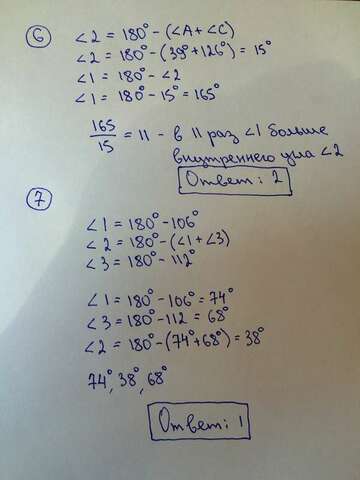 6
∠2 = 180° - (∠A + ∠C)
∠2 = 180° - (39° + 126°) = 15°
∠1 = 180° - ∠2
∠1 = 180° - 15° = 165°
165/15 = 11 - в 11 раз ∠1 больше
внутреннего угла ∠2
Ответ: 2
7
∠1 = 180° - 106°
∠2 = 180° - (∠1 + ∠3)
∠3 = 180° - 112°
∠1 = 180° - 106° = 74°
∠3 = 180° - 112 = 68°
∠2 = 180° - (74° + 68°) = 38°
74°, 38°, 68°
Ответ: 1